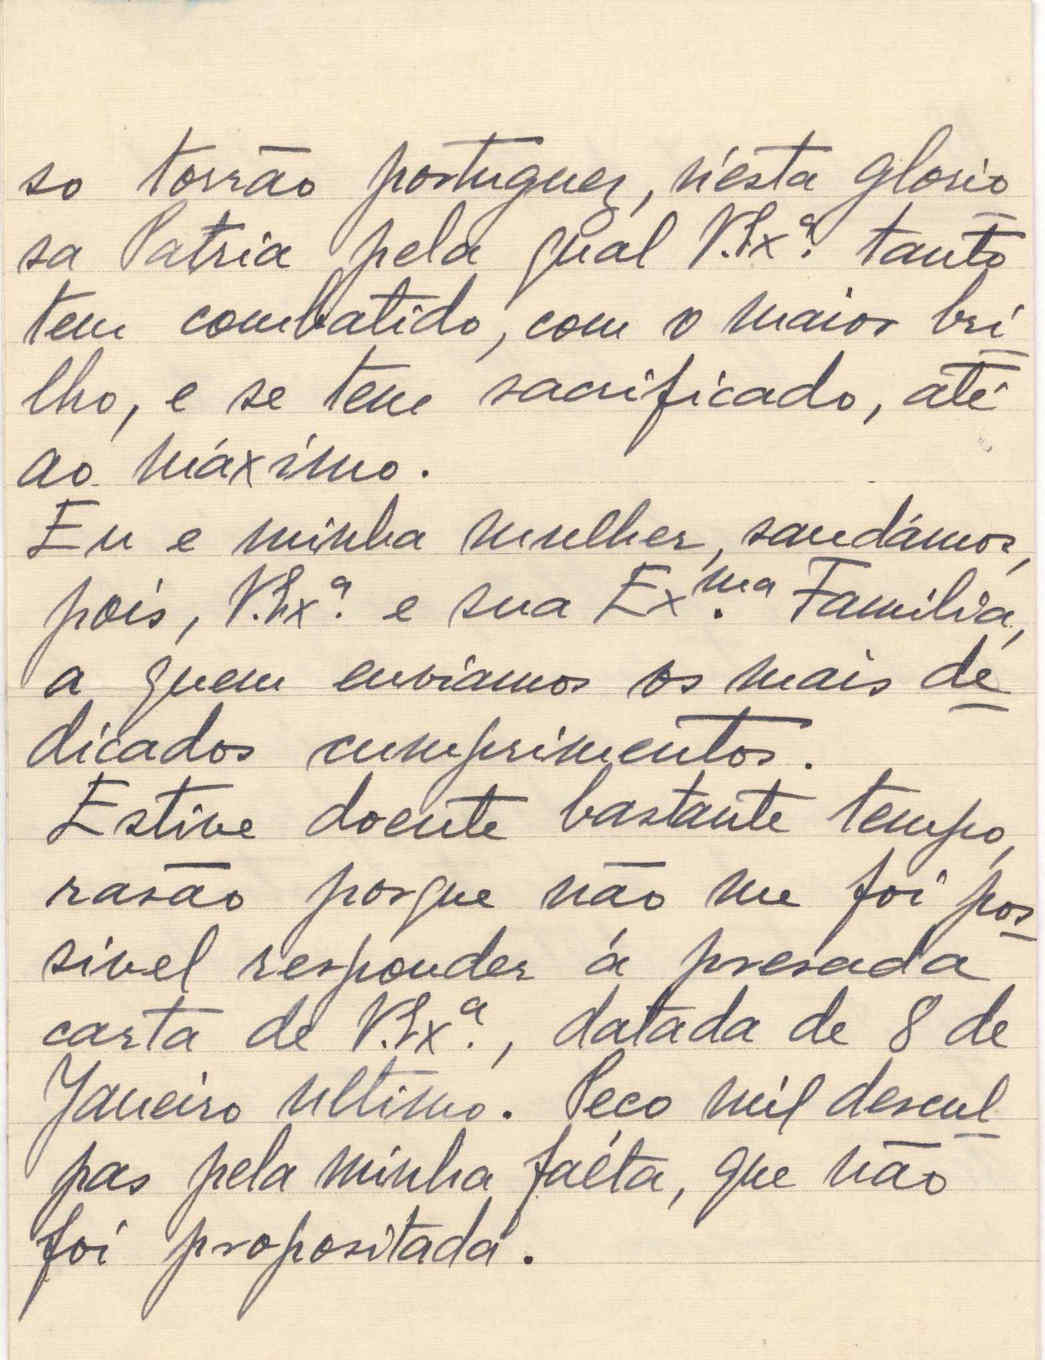 so torrão portuguez, n'esta glorio
sa Patria pela qual V. Exª. tanto
tem combatido, com o maior bri
lho, e se tem sacrificado, até
ao máximo.
Eu e minha mulher, saudámos,
pois, V. Exª. e sua Ex.ma Familia,
a quem enviamos os mais de
dicados cumprimentos.
Estive doente bastante tempo,
rasão porque não me foi pos
sivel responder á presada
carta de V. Exª., datada de 8 de
Janeiro ultimo. Peço mil descul
pas pela minha falta, que não
foi propositada.